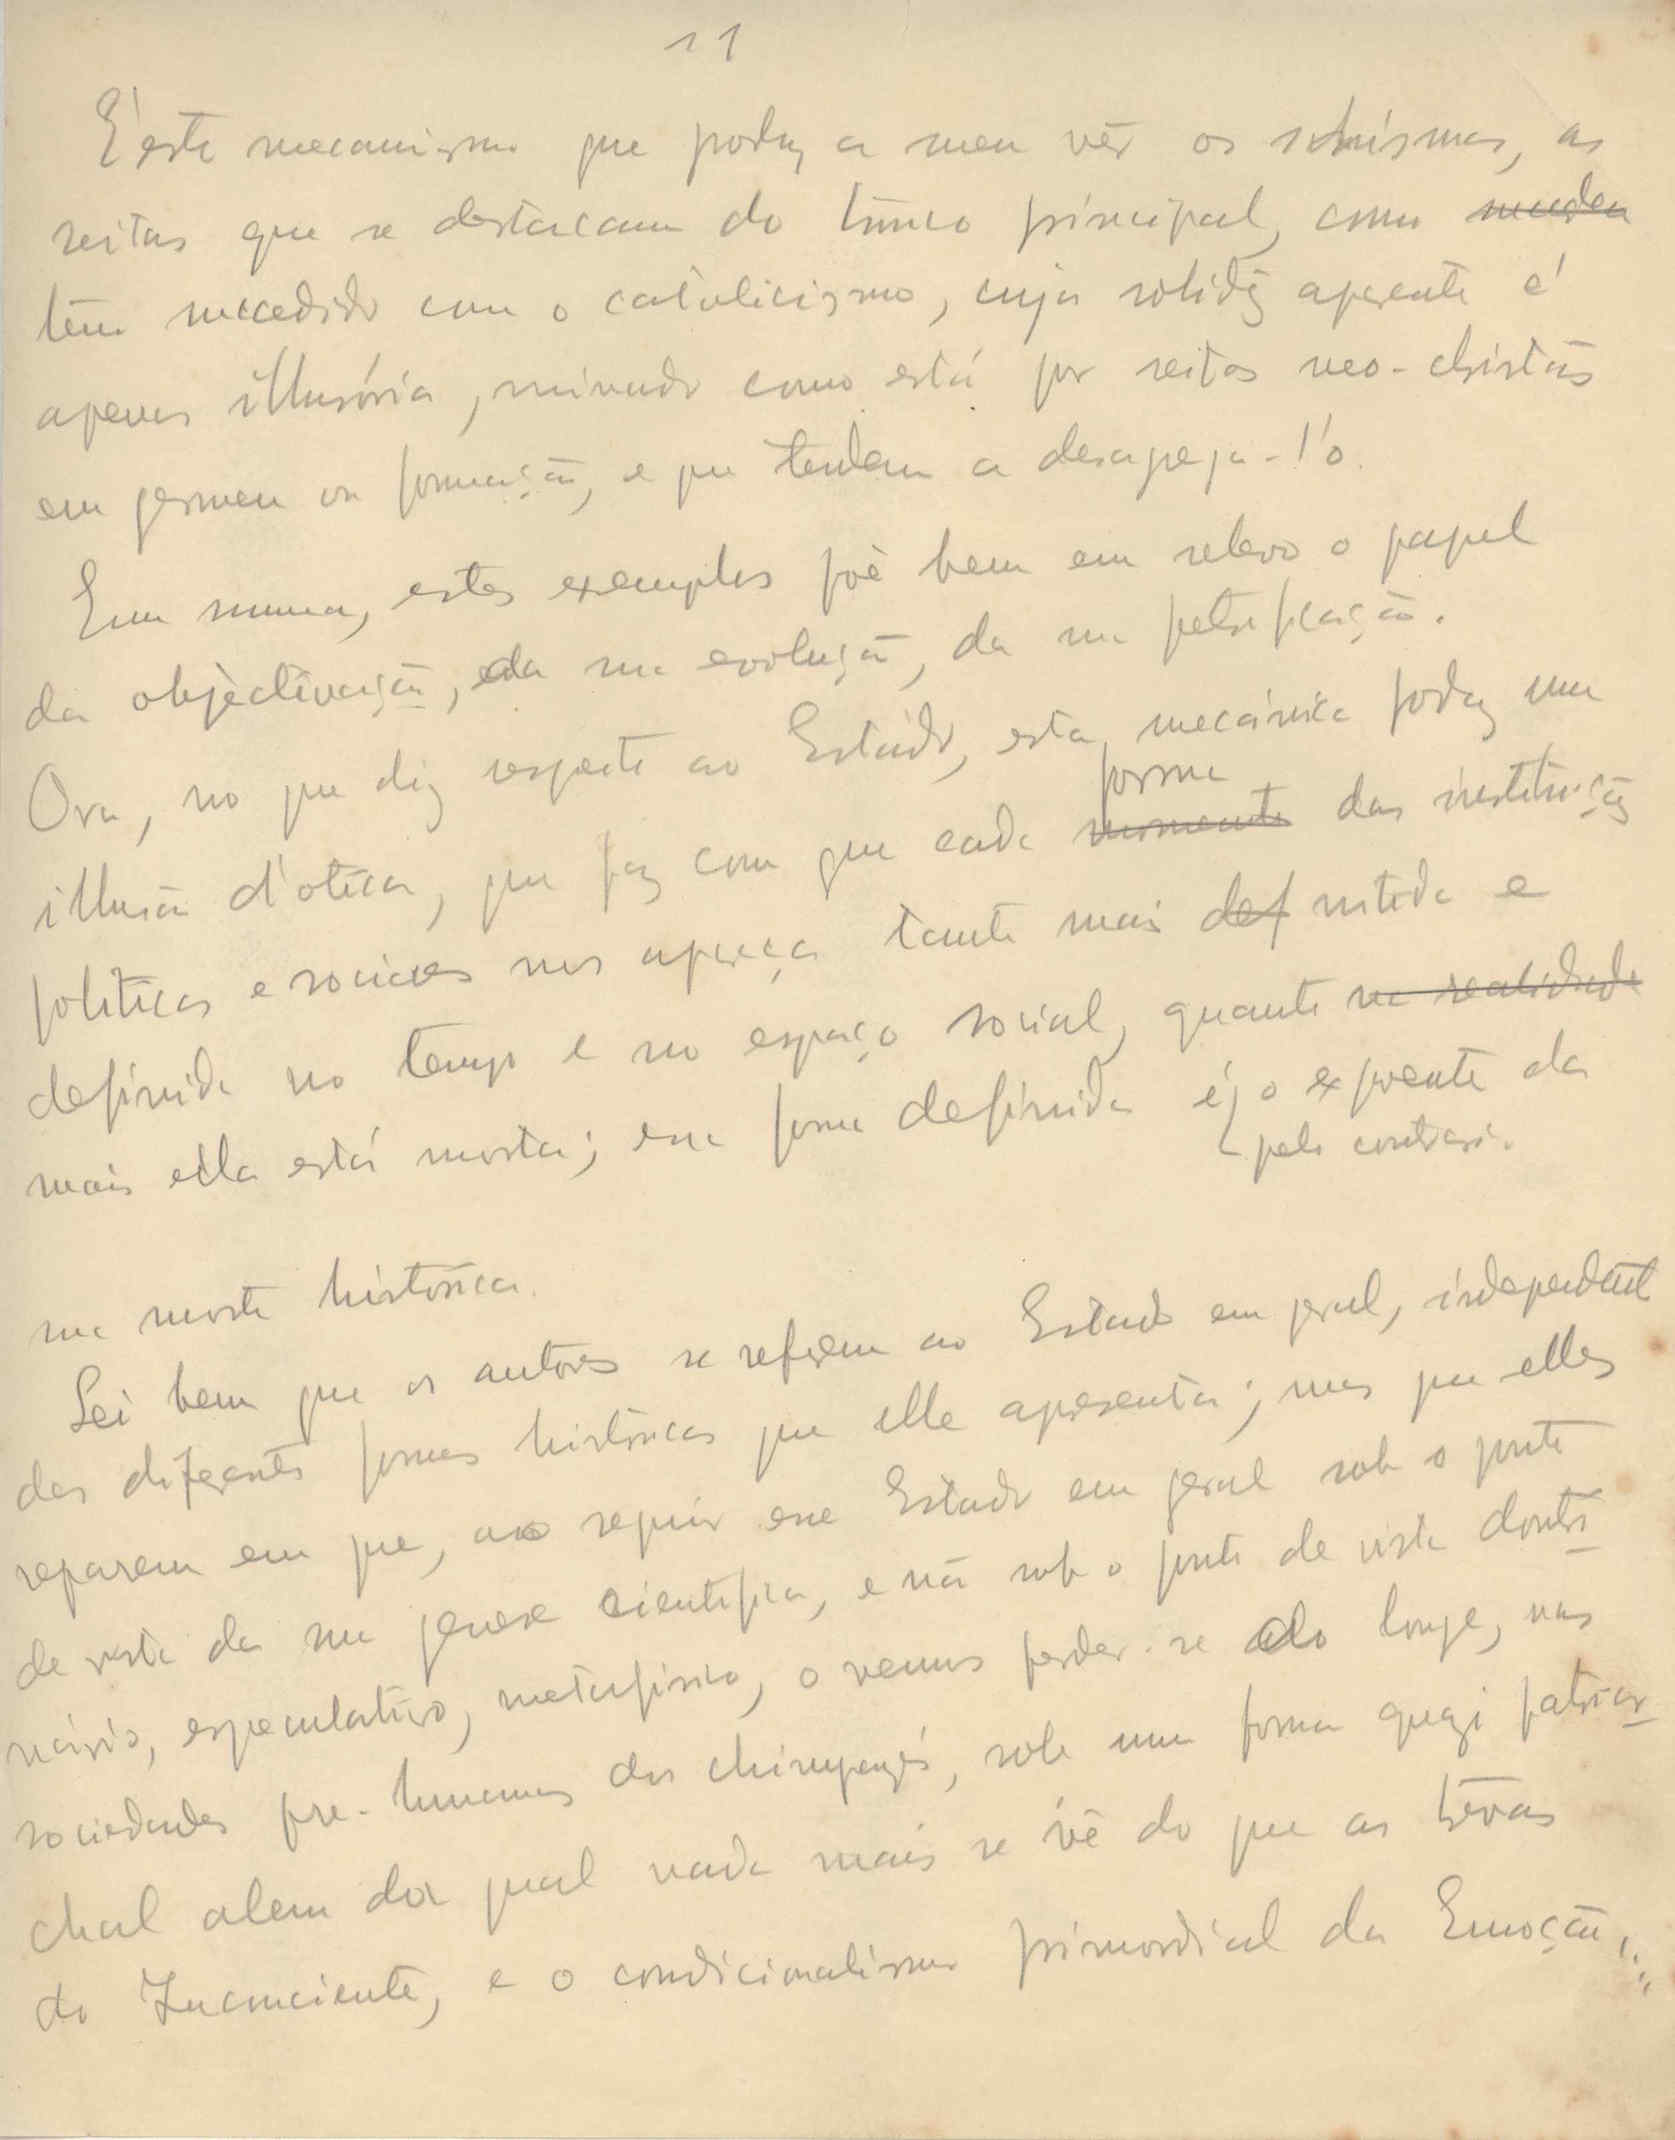 11
É este mecanismo que produz a meu vêr os schismas, as
seitas que se destacam do tronco principal, como succedeu
têm succedido com o catolicismo, cuja solidez aparente é
apenas illusória, minado como está por seitas neo-christãs
em germen ou formação, e que tendem a desagrega-l'o.
Em summa, estes exemplos põe bem em relevo o papel
da objèctivação, da sua evolução, da sua petrificação.
Ora, no que diz respeito ao Estado, esta mecánica produz uma
forma
illusão d'otica, que faz com que cada momento das instituições
politicas e sociaes nos apareça tanto mais def nitida e
definida no tempo e no espaço social, quanto na realidade
mais ella está morta; essa forma definida é, o expoente da
pelo contrario.
sua morte histórica.
Sei bem que os autores se referem ao Estado em geral, independente
das diferentes formas históricas que elle apresenta; mas que elles
reparem em que, ao seguir esse Estado em geral sob o ponto
de vista da sua genese cientifica, e não sob o ponto de vista doutri-
nário, especulativo, metafisico, o vemos perder-se ao longe, nas
sociedades pre-humanas dos chimpanzés, sob uma forma quazi patriar-
chal alem da qual nada mais se vê do que as trevas
do Inconsciente, e o condicionalismo primordial da Emoção...